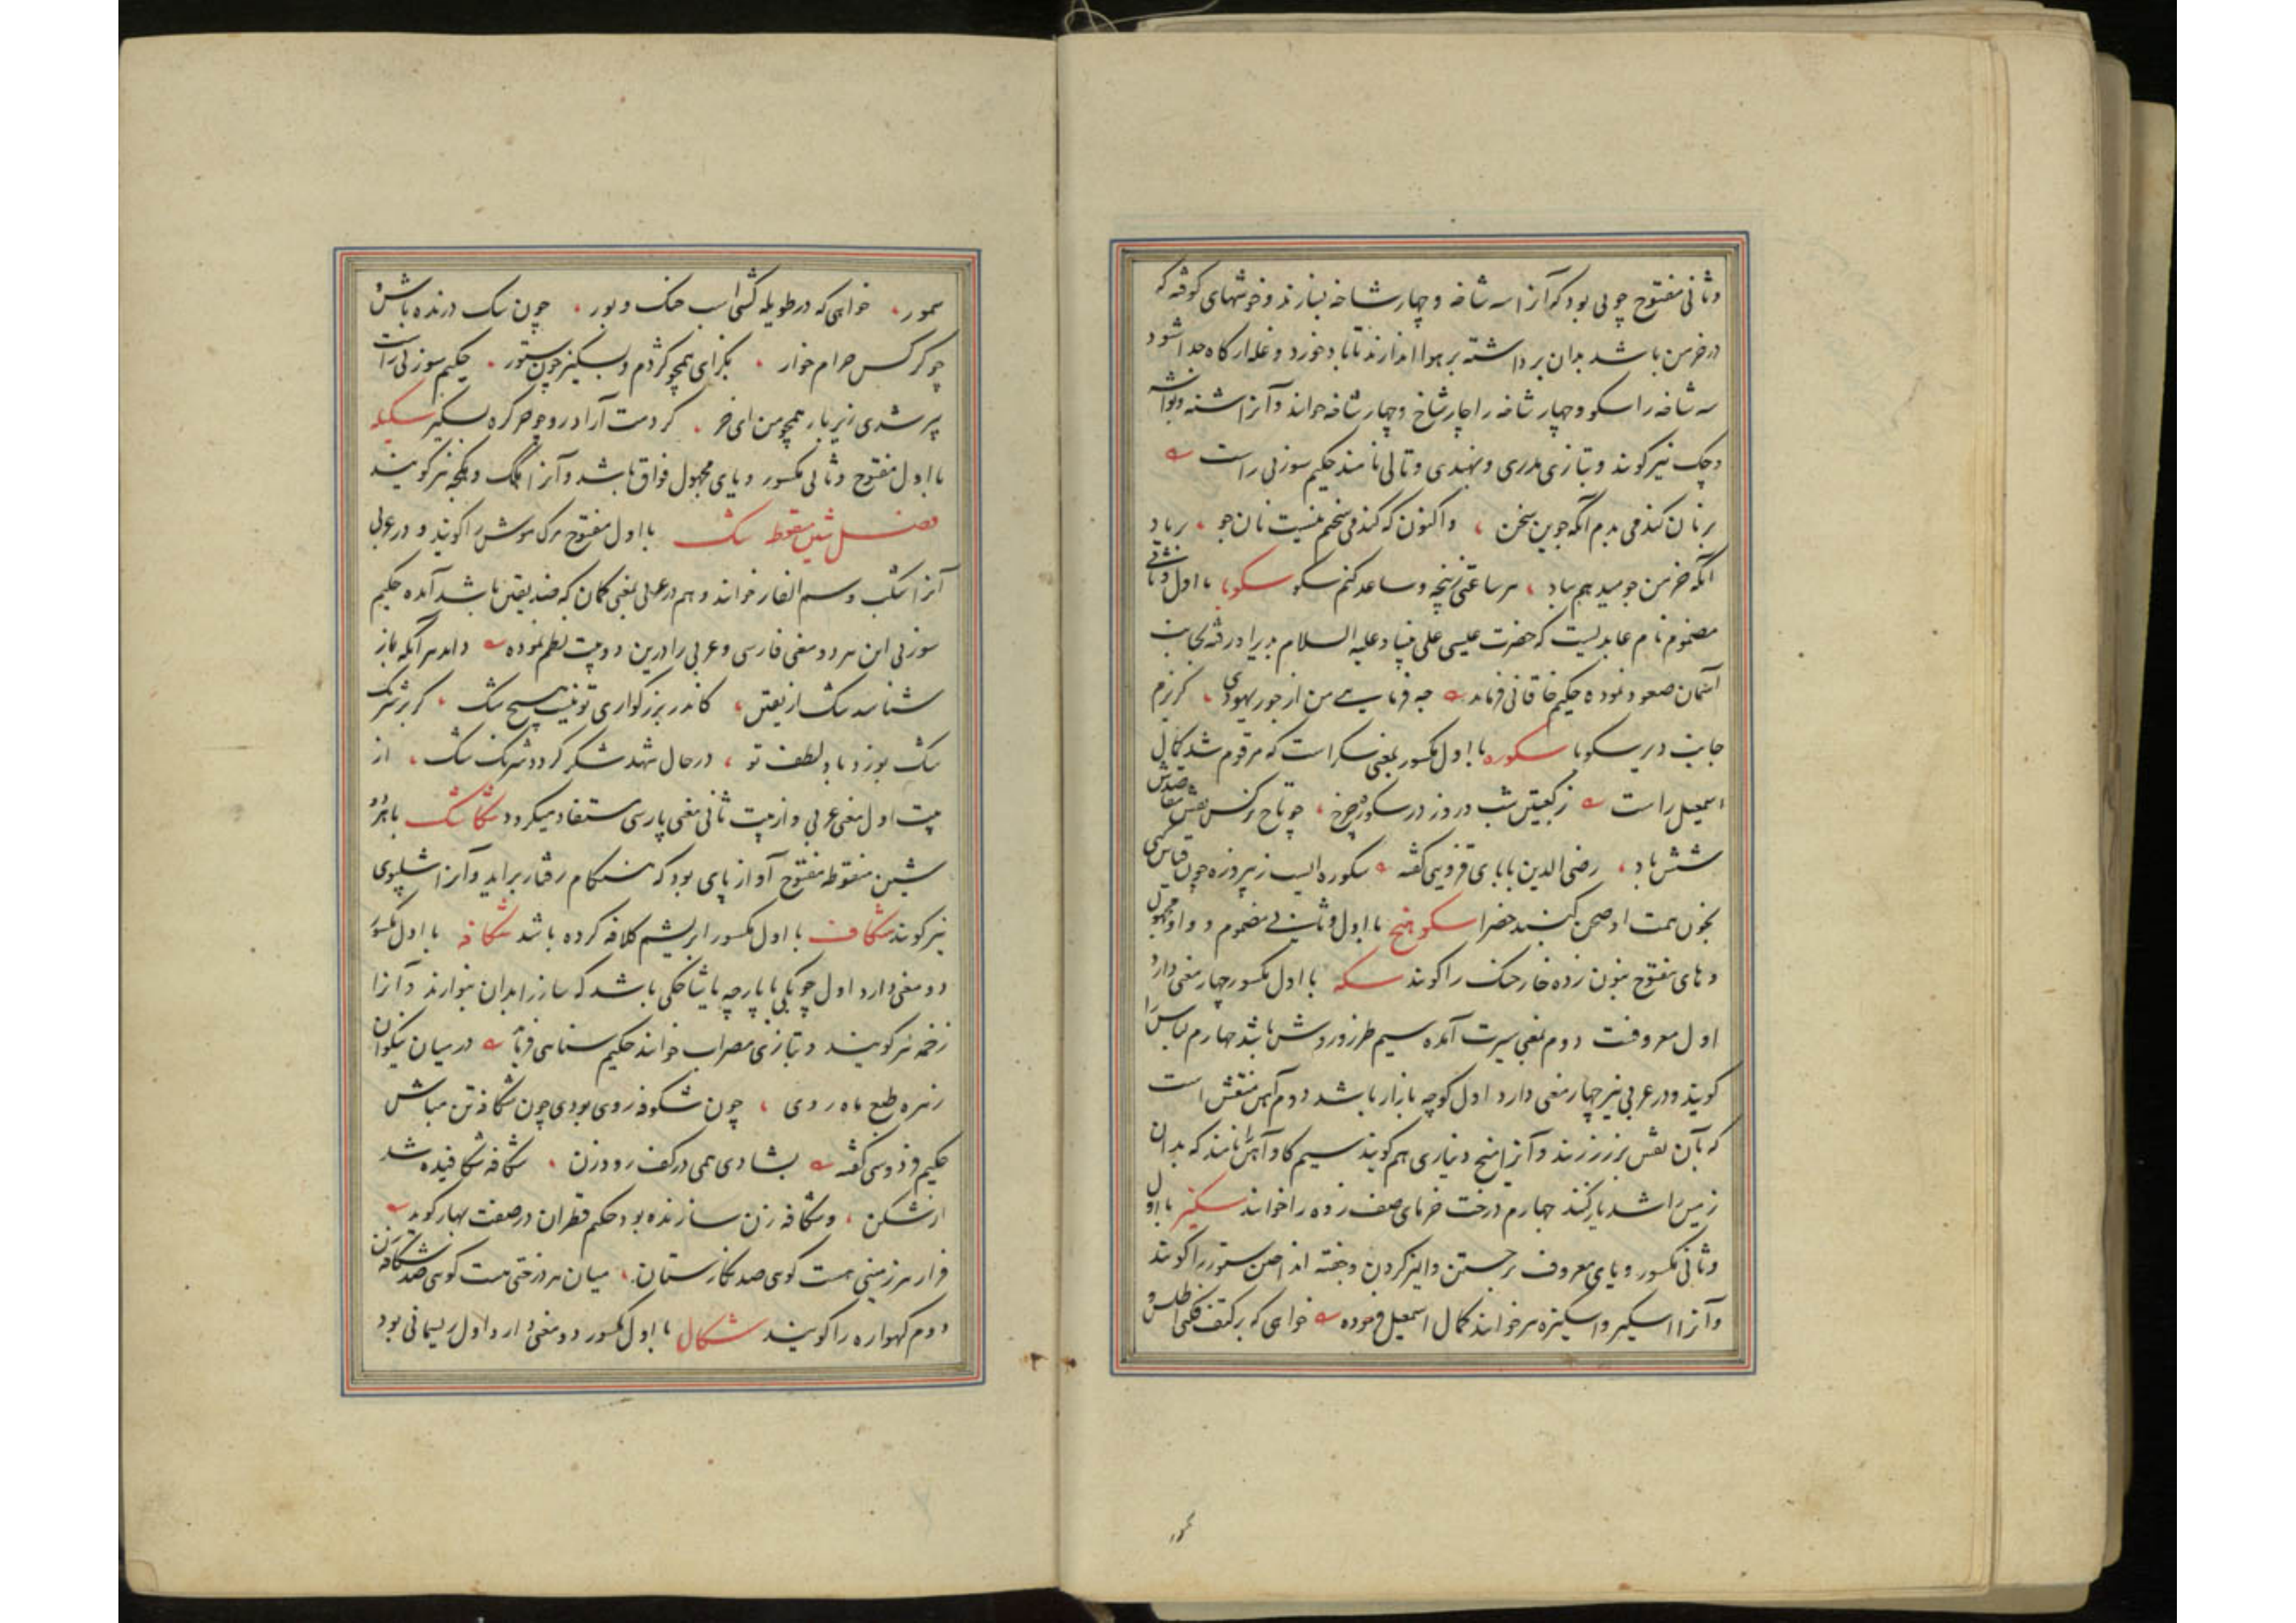 وثانی مفتوح چوبی بود که آنرا سه شاخه و چهار شاخه بسازند و خوشهای کوفته که
در خرمن باشد بدان برداشته بر هوا اندازند تا باد خورد و غله از کاه جدا شود
سه شاخه را سکو و چهار شاخه را چارشاخ و چهار شاخه خوانند و آنرا
نیز گویند و بتازی مذری و نامند حکیم سوزنی راست
بر نان گندمی بدم آنگه جوین سخن واکنون که گندمی سخنم نیست نان جو
آنگه خرمن جو هر ساعتی ز پنجه و ساعد کنم سکو سکوبا با اول وثانی
مضموم نام عابدیست که حضرت عیسی علی نبینا و علیه السلام بدیر او رفته بجانب
آسمان صعود نموده حکیم خاقانی فرماید چه فرمایی من از جور یهودی گریزم
جانب دیر سکوبا سکوره با اول مکسور بمعنی سکرا است که مرقوم شد کمال
اسمعیل راست ز کعبتین شب و روز در سکوره چرخ چو تاج نرگس نقش
شش باد رضی الدین بابای قزوینی گفته سکوره ایست ز پیروزه چون قیاس کنی
بخون همت او صحن گنبد خضرا سکوهنج با اول و ثانی مضموم و واو مجهول
و های مفتوح بنون زده خار خسک را گویند سکه با اول مکسور چهار معنی دارد
اول معروفست دوم بمعنی سیرت آمده سیم طرز و روش باشد چهارم لباس را
گویند و در عربی نیز چهار معنی دارد اول کوچه بازار باشد دوم آهن منقش است
که بآن نقش بر زر زنند و آنرا میخ دیناری هم گویند سیم گاو آهن را نامند که بدان
زمین را شدیار کنند چهارم درخت خرمای صف زده را خوانند سکیز با اول
وثانی مکسور و یای معروف برجستن و الیز کردن و جفته انداختن ستور را گویند
و آنرا اسکیز و اسکیزه نیز خوانند کمال اسمعیل فرموده خواهی که بر کتف فکنی اطلس و
سمور
سمور خواهی که در طویله کشی اسب خنگ و بور چون سگ درنده باش و
چو کرکس حرام خوار بگزای همچو کژدم و بسکیز چون ستور حکیم سوزنی راست
پیر شدی زیر بار همچو من ای خر سکیله
با اول مفتوح وثانی مکسور و یای مجهول فواق باشد و آنرا نیز گویند
فصل شین منقوطه شک با اول مفتوح مرگ موش را گویند و در عربی
آنرا شک و سم الفار خوانند و هم در عربی بمعنی گمان که ضد یقین باشد آمده حکیم
سوزنی این هر دو معنی فارسی و عربی را درین دو بیت نظم نموده داند هر آنکه باز
شناسد شک از یقین کاندر بزرگواری تو نیست هیچ شک گر بر شرنگ
شک بوزد باد لطف تو در حال شهد شکر گردد شرنگ شک از
بیت اول معنی عربی و از بیت ثانی معنی پارسی مستفاد میگردد شکاشک با هر دو
شین منقوطه مفتوح آواز پای بود که هنگام رفتار برآید و آنرا شلپوی
نیز گویند شکاف با اول مکسور ابریشم کلافه کرده باشد شکافه با اول مکسور
دو معنی دارد اول چوبکی یا پارچه یا شاخکی باشد که ساز را بدان بنوازند و آنرا
زخمه نیز گویند و بتازی مضراب خوانند حکیم سنایی فرماید در میان نیکوان
زهره طبع ماه روی چون شکوفه روی بودی چون شکافه تن مباش
حکیم فردوسی گفته بشادی همی در کف رود زن شکافه شکافیده شد
از شکن و شکافه زن سازنده بود حکیم قطران در صفت بهار گوید
فراز هر زمینی هست گویی صد نگارستان میان هر درختی هست گویی صد شکافه زن
دوم گهواره را گویند شکال با اول مکسور دو معنی دارد اول ریسمانی بود